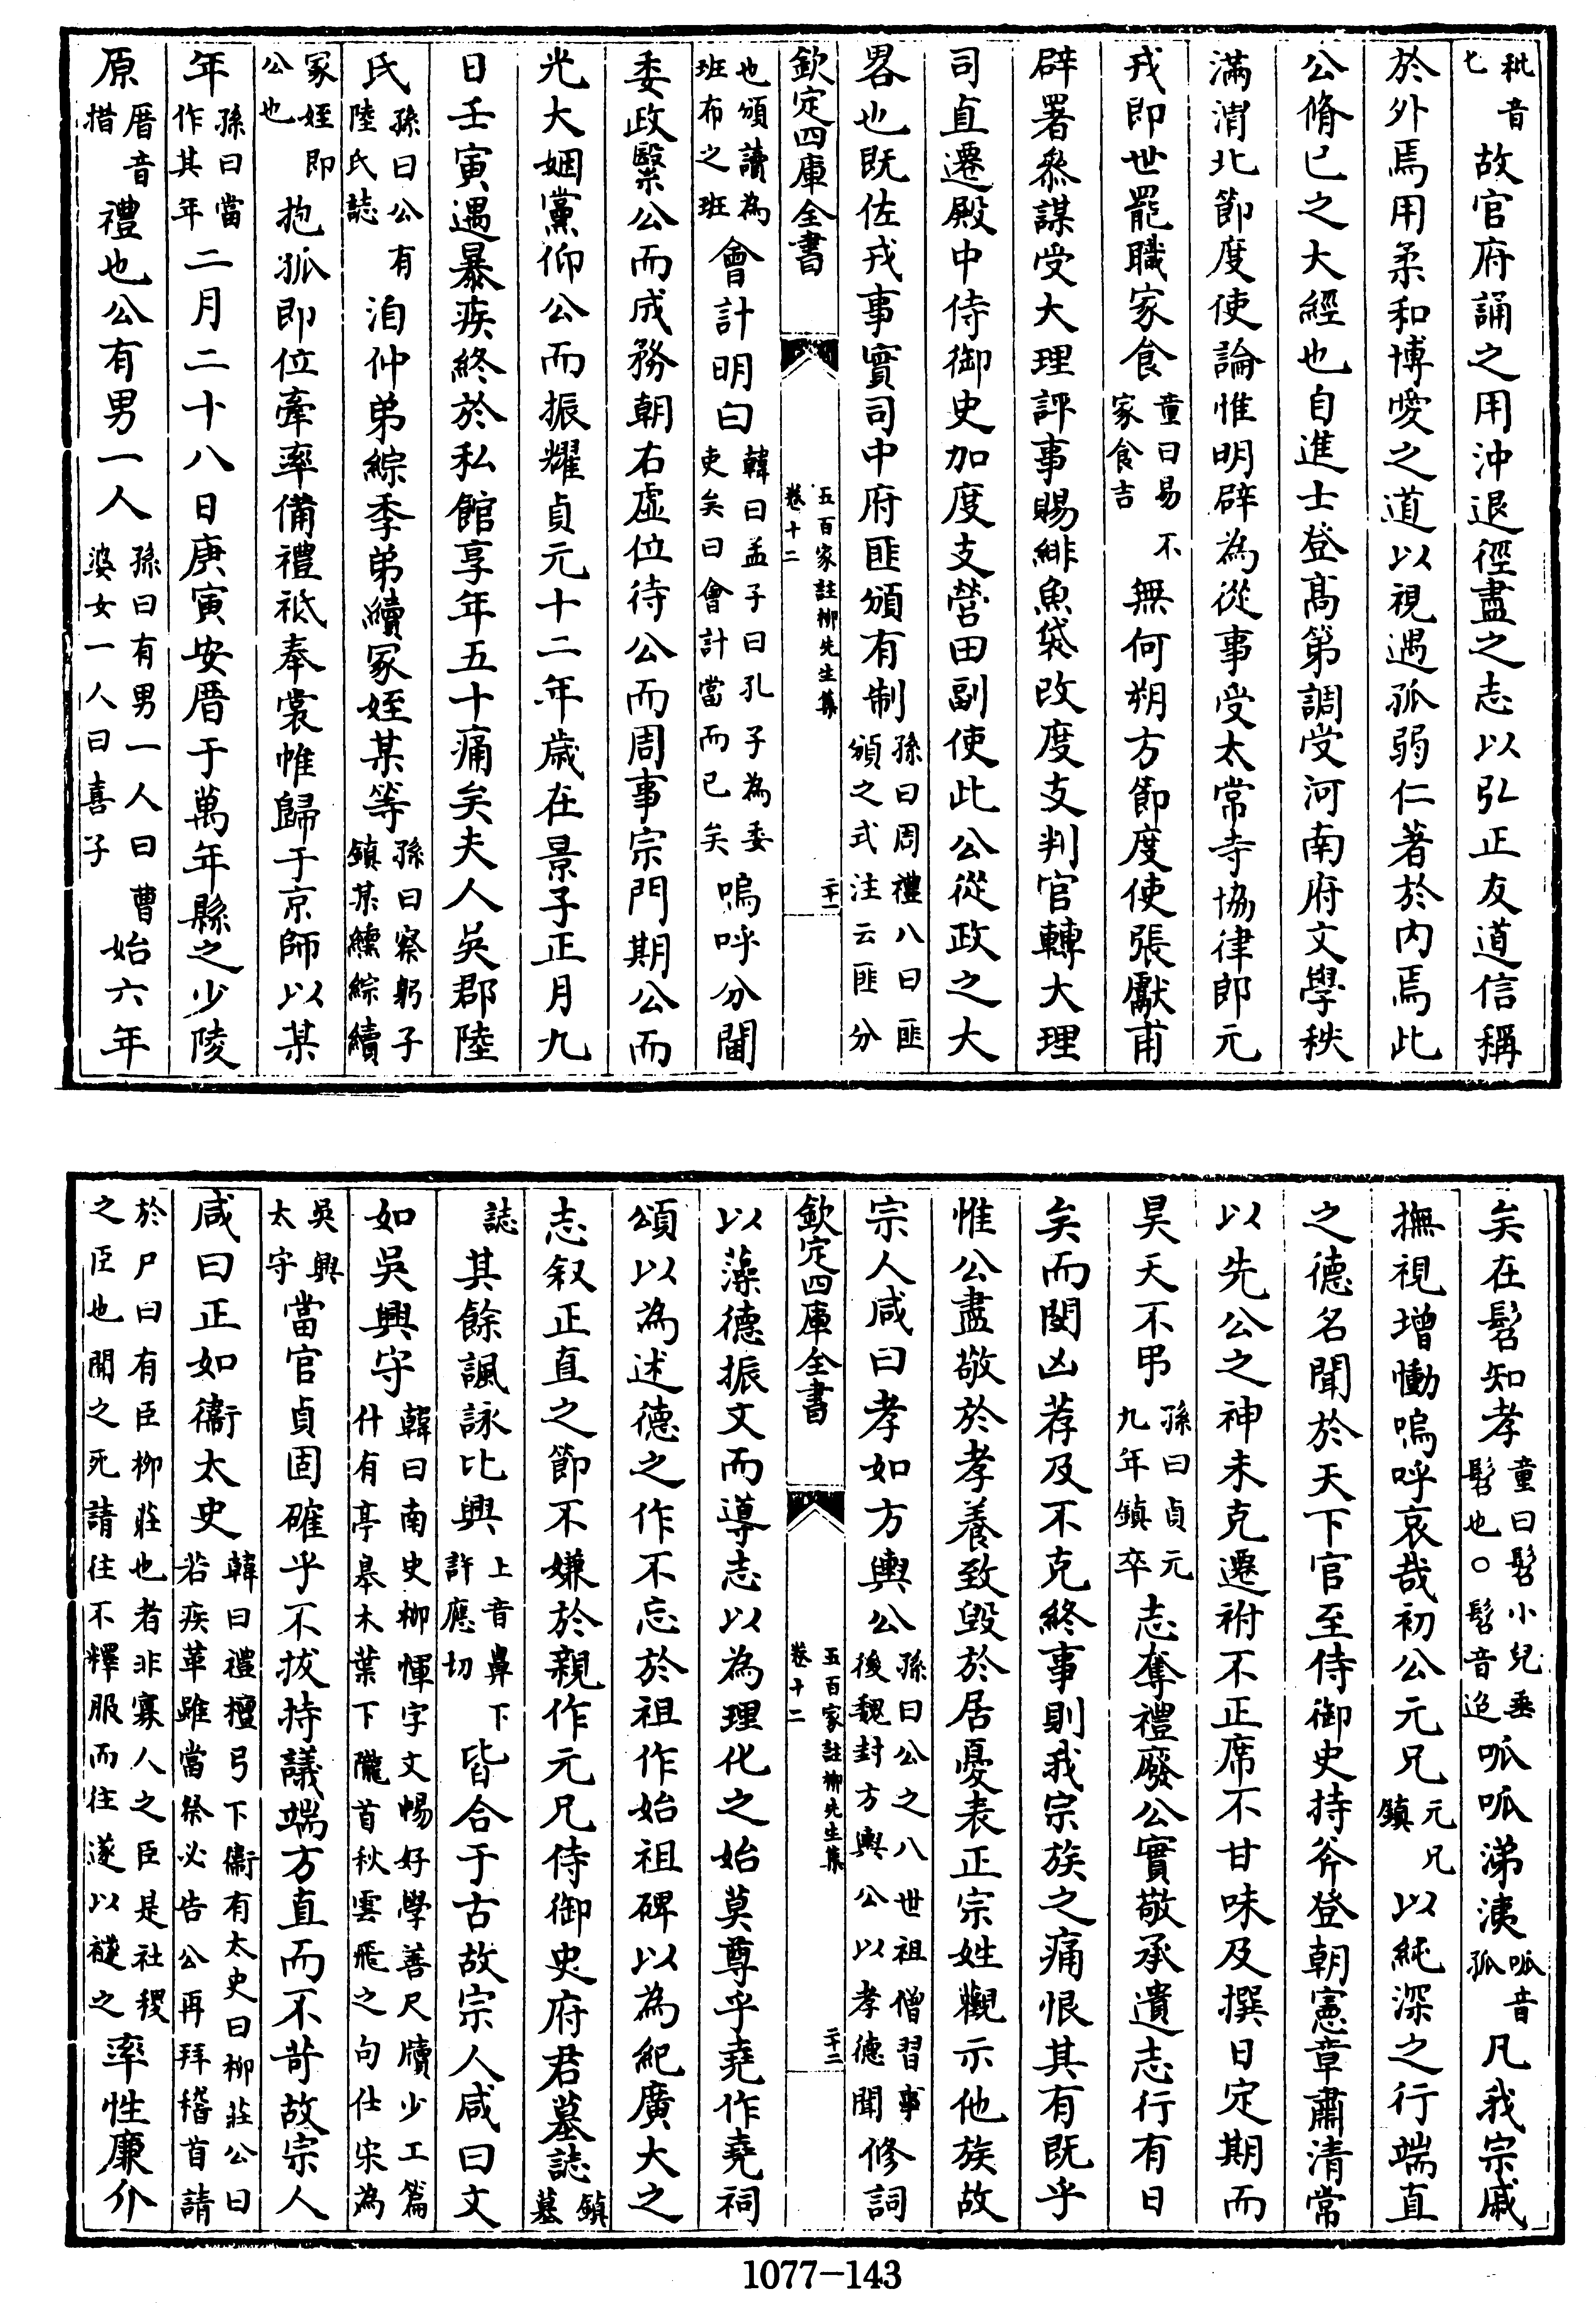 秕音七故官府誦之用沖退徑盡之志以弘正友道信稱
於外焉用柔和博愛之道以視遇孤弱仁著於内焉此
公脩已之大經也自進士登髙第調受河南府文學秩
滿渭北節度使論惟明辟為從事受太常寺協律郎元
戎即世罷職家食童曰易不家食吉無何朔方節度使張獻甫
辟署叅謀受大理評事賜緋魚袋改度支判官轉大理
司直遷殿中侍御史加度支營田副使此公從政之大
畧也既佐戎事實司中府匪頒有制孫曰周禮八曰匪頒之式注云匪分
欽定四庫全書 五百家註柳先生集卷十二 二十一
也頒讀為班布之班會計明白韓曰孟子曰孔子為委吏矣曰會計當而已矣嗚呼分閫
委政繄公而成務朝右虚位待公而周事宗門期公而
光大姻黨仰公而振耀貞元十二年歲在景子正月九
日壬寅遇暴疾終於私館享年五十痛矣夫人吳郡陸
氏孫曰公有陸氏誌洎仲弟綜季弟續冢姪某等孫曰察躬子鎮某纁綜續
冢姪即公也抱孤即位牽率備禮祗奉裳帷歸于京師以某
年孫曰當作其年二月二十八日庚寅安厝于萬年縣之少陵
原厝音措禮也公有男一人孫曰有男一人曰曹婆女一人曰喜子始六年
矣在髫知孝童曰髫小兒垂髫也○髫音迢呱呱涕洟呱音孤凡我宗戚
撫視增慟嗚呼哀哉初公元兄元兄鎮以純深之行端直
之德名聞於天下官至侍御史持斧登朝憲章肅清常
以先公之神未克遷祔不正席不甘味及撰日定期而
昊天不弔孫曰貞元九年鎮卒志奪禮廢公實敬承遺志行有日
矣而閔凶荐及不克終事則我宗族之痛恨其有既乎
惟公盡敬於孝養致毀於居憂表正宗姓觀示他族故
宗人咸曰孝如方輿公孫曰公之八世祖僧習事後魏封方輿公以孝德聞修詞
欽定四庫全書 五百家註柳先生集卷十二 二十二
以藻德振文而導志以為理化之始莫尊乎堯作堯祠
頌以為述德之作不忘於祖作始祖碑以為紀廣大之
志叙正直之節不嫌於親作元兄侍御史府君墓誌鎮墓
誌其餘諷詠比興上音鼻下許應切皆合于古故宗人咸曰文
如吳興守韓曰南史柳惲字文暢好學善尺牘少工篇什有亭臯木葉下隴首秋雲飛之句仕宋為
吳興太守當官貞固確乎不拔持議端方直而不苛故宗人
咸曰正如衞太史韓曰禮檀弓下衞有太史曰柳莊公曰若疾革雖當祭必告公再拜稽首請
於尸曰有臣柳莊也者非寡人之臣是社稷之臣也聞之死請往不釋服而往遂以襚之率性廉介
1077-143